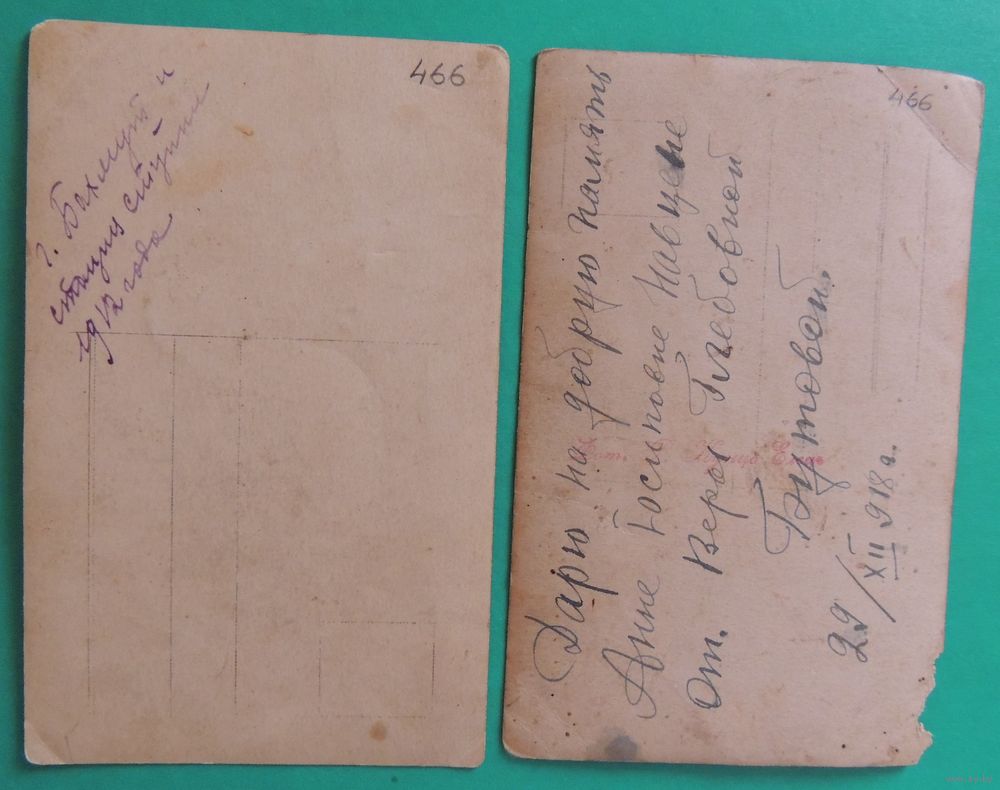 466
г. Бахмут и
станция ступки
1912 года
466
Дарю на добрую память
Анне Іосиповне
От. Веры Глебовной
Бутовой.
29/XII 918 г.